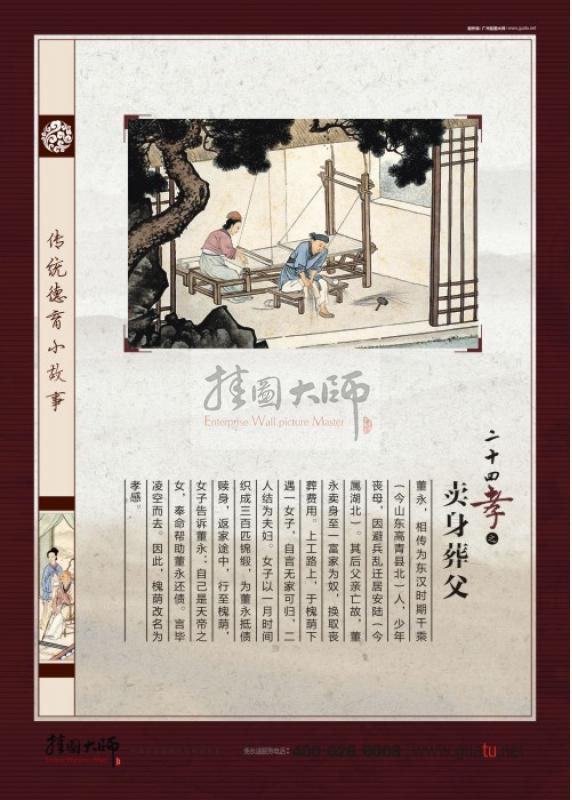 传统德育小故事
挂图大师
Enterprise Wall picture Master
二十四孝之
卖身葬父
董永，相传为东汉时期千乘
（今山东高青县北）人，少年
丧母，因避兵乱迁居安陆（今
属湖北）。其后父亲亡故，董
永卖身至一富家为奴，换取丧
葬费用。上工路上，于槐荫下
遇一女子，自言无家可归，二
人结为夫妇。女子以一月时间
织成三百匹锦缎，为董永抵债
赎身，返家途中，行至槐荫，
女子告诉董永：自己是天帝之
女，奉命帮助董永还债。言毕
凌空而去。因此，槐荫改名为
孝感。
挂图大师
免长途服务电话：400-626-6008 www.guatu.net